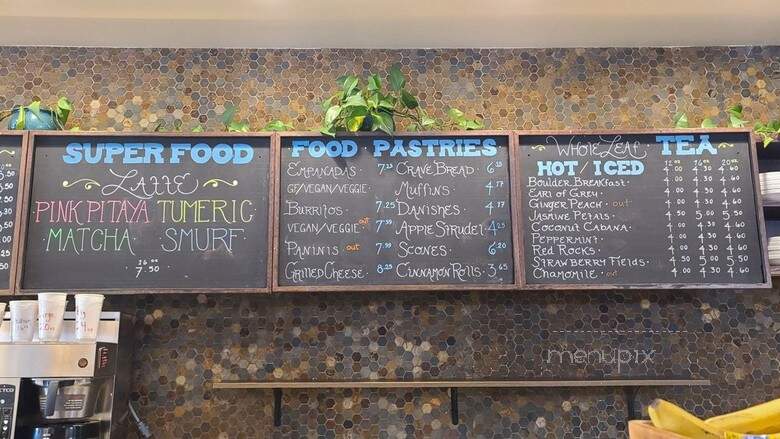 SUPER FOOD
LATTE
PINK PITAYA TUMERIC
MATCHA SMURF
16 oz
7.50
FOOD PASTRIES
EMPANADAS 7.25 CRAVE BREAD
GF/VEGAN/VEGGIE MUFFINS 4.17
BURRITOS 7.25 DANISHES 4.17
VEGAN/VEGGIE out APPLE STRUDEL 4.25
PANINIS out SCONES 6.20
GRILLED CHEESE 8.25 CINNAMON ROLLS 3.65
WHOLE LEAF TEA
HOT/ICED 12 oz 16 oz 20 oz
BOULDER BREAKFAST
EARL OF GREY
GINGER PEACH out
JASMINE PETALS 4.50 5.00 5.50
COCONUT CABANA 4.00 4.30 4.60
PEPPERMINT 4.00 4.30 4.60
RED ROCKS 4.00 4.30 4.60
STRAWBERRY FIELDS 4.00 4.30 4.60
CHAMOMILE out 4.00 4.30 4.60
menupix